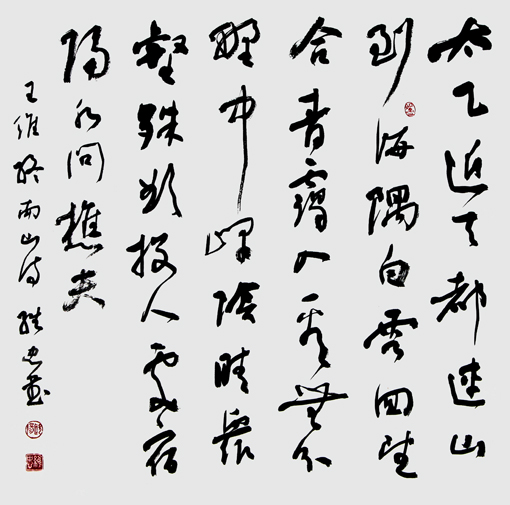 太乙近天都連山
到海隅白雲回望
合青靄入看無分
野中峰陰晴眾
壑殊欲投人處宿
隔水問樵夫
王維終南山詩